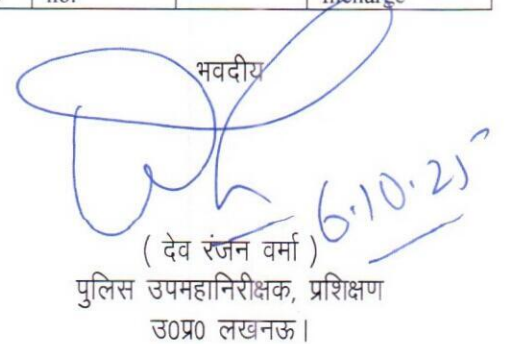 no. incharge
भवदीय
6.10.25
( देव रंजन वर्मा )
पुलिस उपमहानिरीक्षक, प्रशिक्षण
उ0प्र0 लखनऊ।